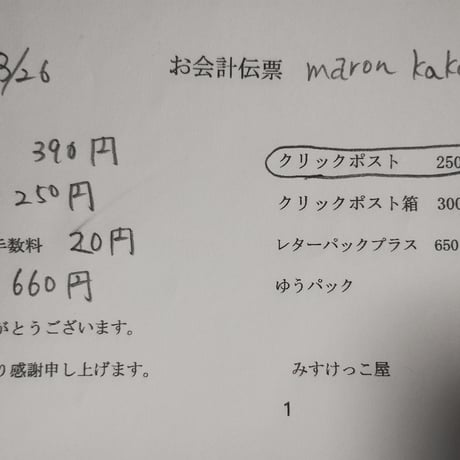 3/26 お会計伝票 maron kak
390円 クリックポスト 250
250円 クリックポスト箱 300
手数料 20円 レターパックプラス 650
660円 ゆうパック
がとうございます。
り感謝申し上げます。 みすけっこ屋
1